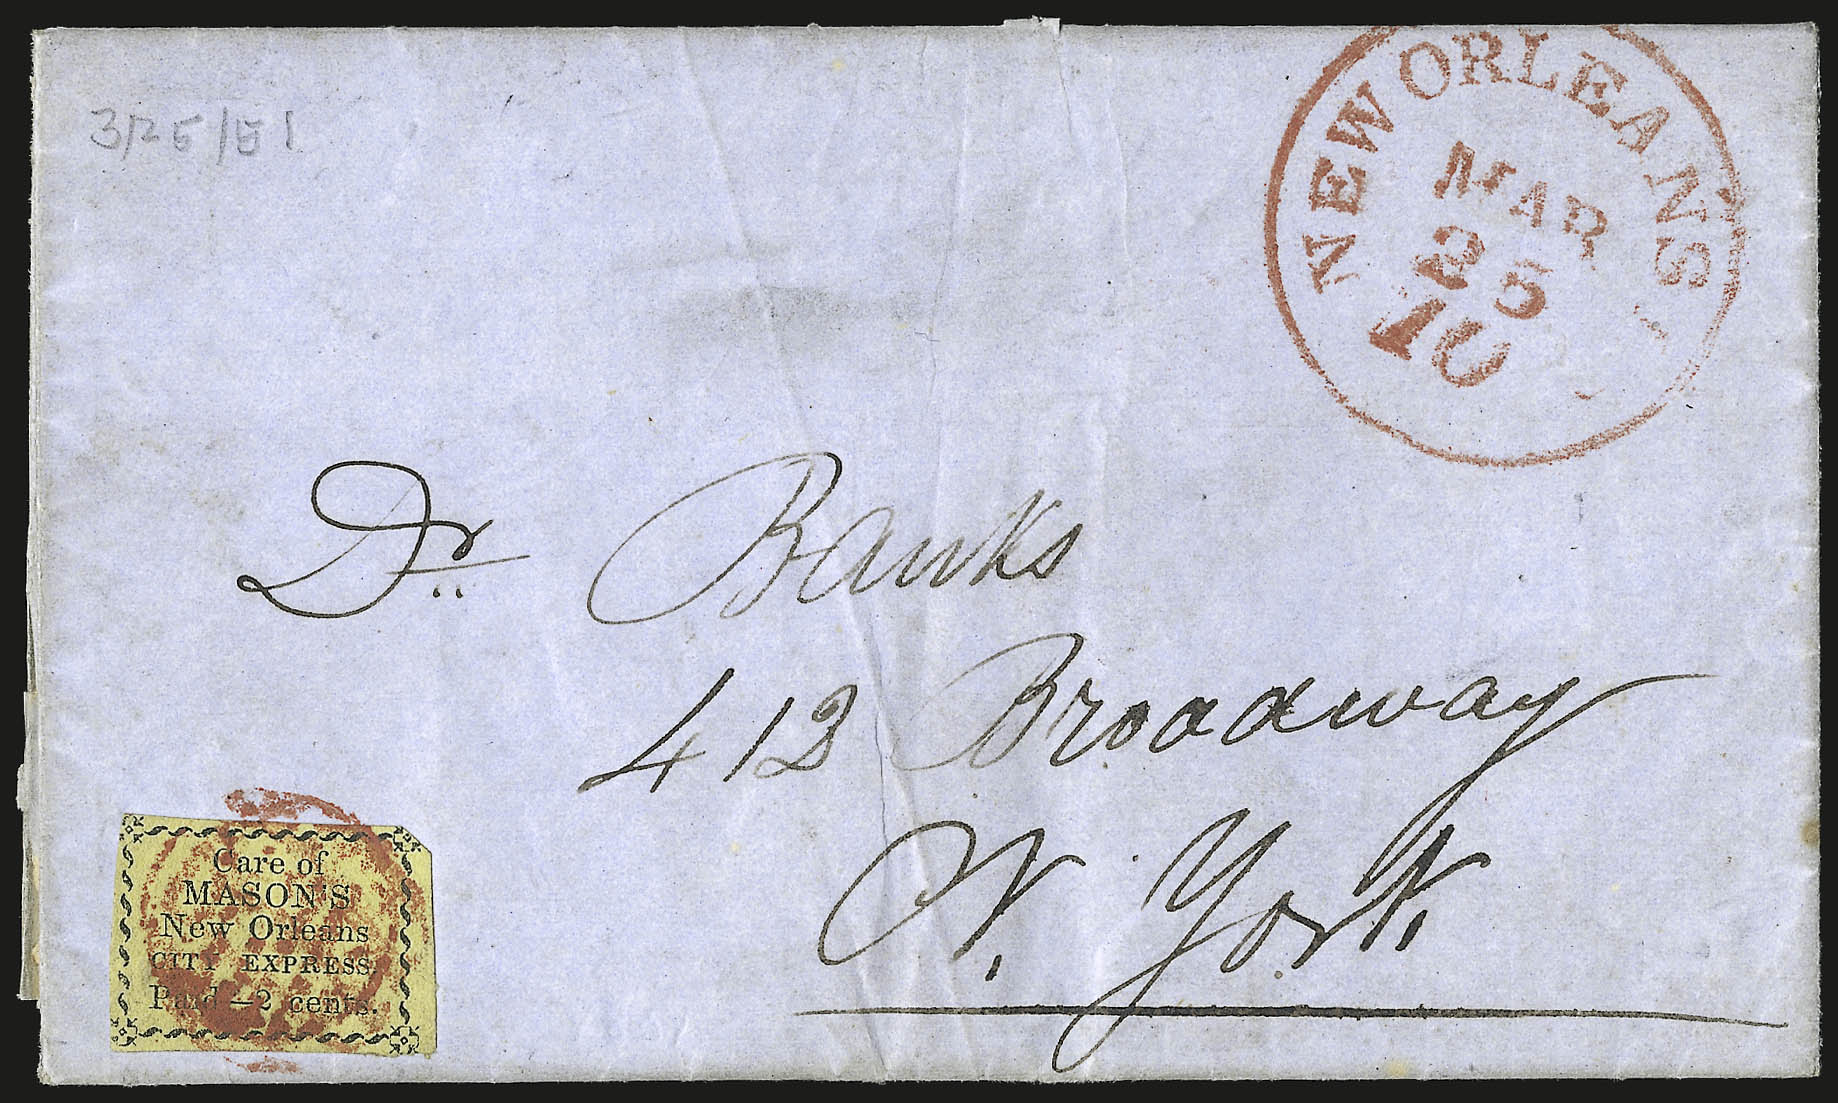 3/25/51
NEW ORLEANS
MAR
25
10
Dr. Banks
412 Broadway
N. York
Care of
MASON'S
New Orleans
CITY EXPRESS
Paid—2 cents.